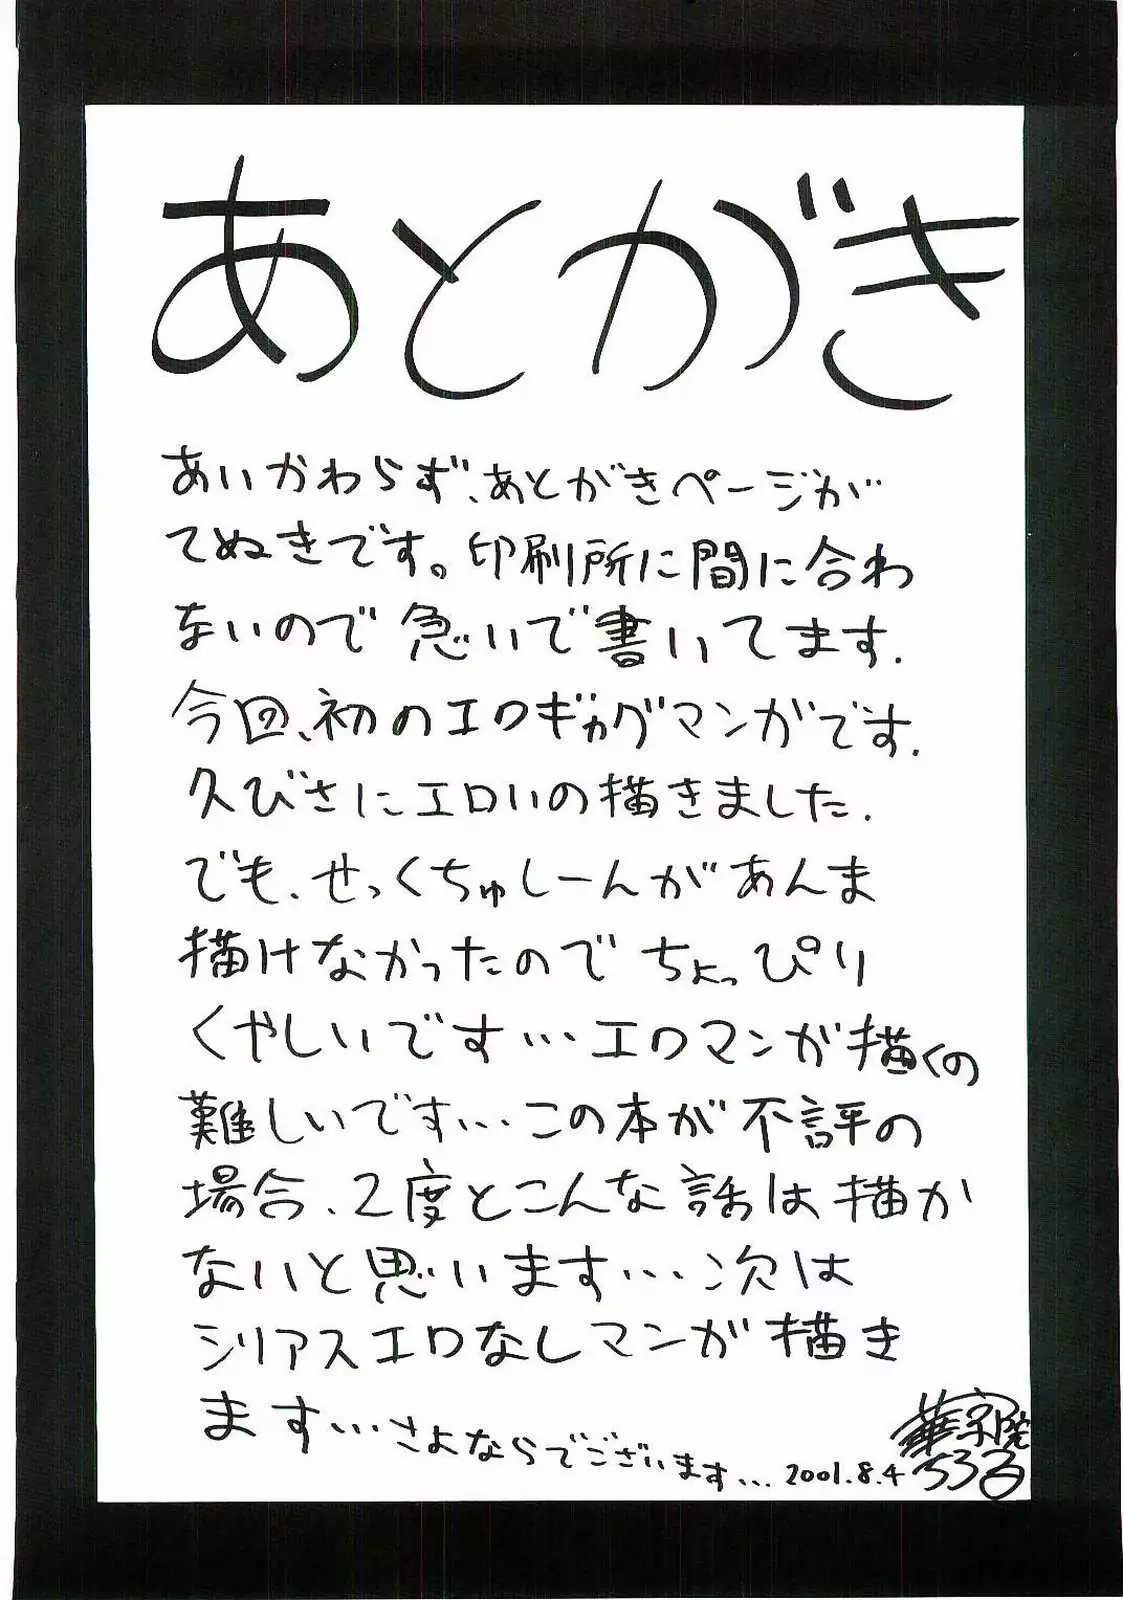 あとがき
あいかわらず、あとがきページが
てぬきです。印刷所に間に合わ
ないので急いで書いてます.
今回、初のエロギャグマンガです.
久びさにエロいの描きました.
でも、せっくちゅしーんがあんま
描けなかったのでちょっぴり
くやしいです…エロマンガ描くの
難しいです…この本が不評の
場合、2度とこんな話は描か
ないと思います…次は
シリアスエロなしマンガ描き
ます…さよならでございます… 2001.8.4